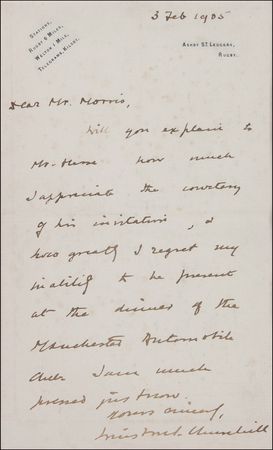 Stations,
Rugby 6 Miles,
Welton 1 Mile,
Telegrams, Kilsby.
3 Feb 1905
Ashby St. Ledgers,
Rugby.
Dear Mr. Morris,
Will you explain to
Mr. how much
I appreciate the courtesy
of his invitation, &
how greatly I regret my
inability to be present
at the dinner of the
Manchester Automobile
Club. I am much
pressed just now
Yours sincerely,
Winston S. Churchill